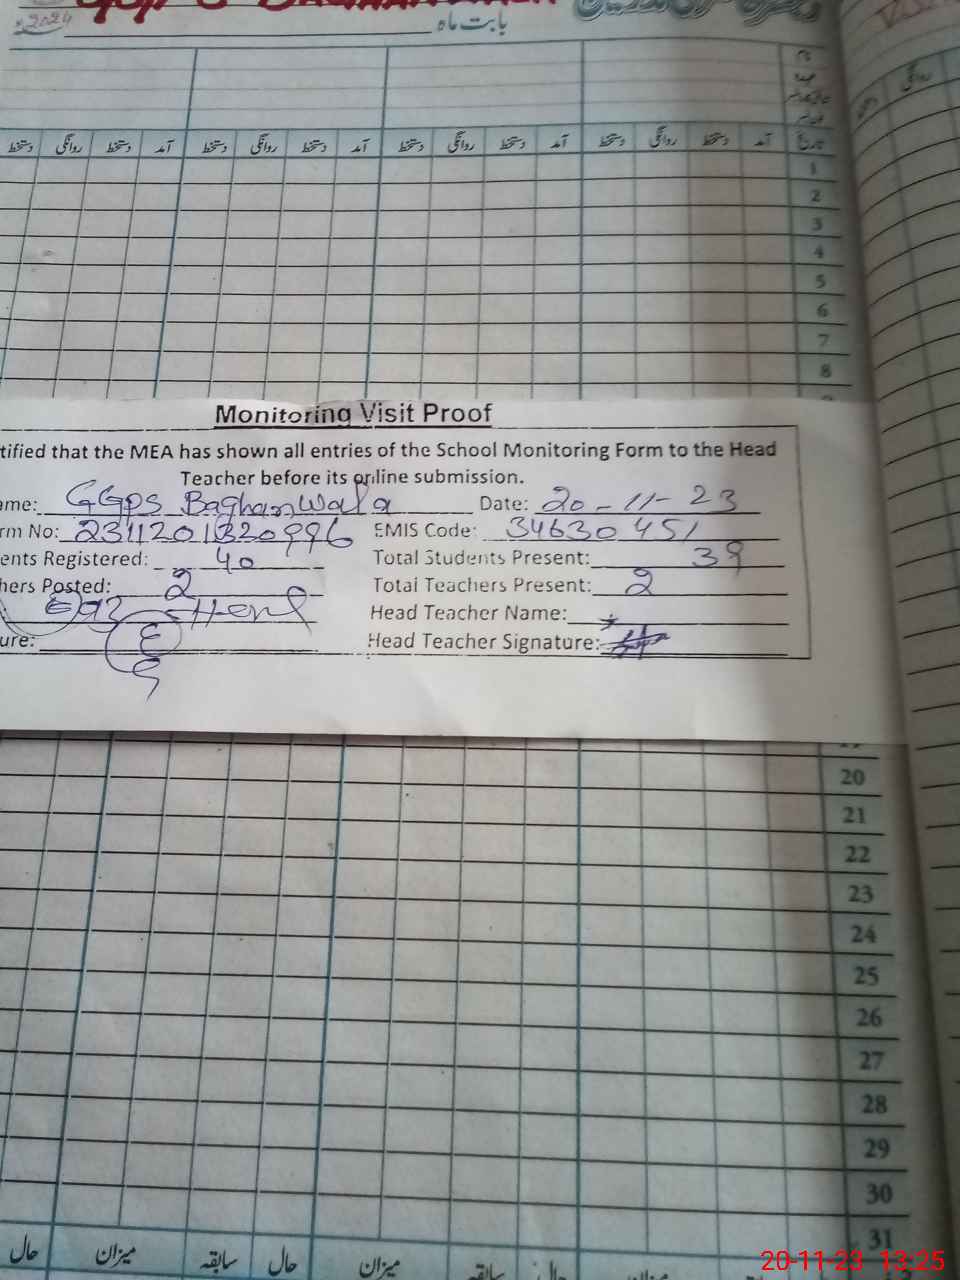 2024
بابت ماہ
نام
عہدہ
تاریخ آمد دستخط روانگی دستخط آمد دستخط روانگی دستخط آمد دستخط روانگی دستخط آمد دستخط روانگی دستخط
روانگی
1
2
3
4
5
6
7
8
Monitoring Visit Proof
tified that the MEA has shown all entries of the School Monitoring Form to the Head
Teacher before its online submission.
ame: GGPS Baghanwala Date: 20-11-23
rm No: 2311201320996 EMIS Code: 34630451
ents Registered: 40 Total Students Present: 39
hers Posted: 2 Total Teachers Present: 2
Head Teacher Name:
ure: Head Teacher Signature:
20
21
22
23
24
25
26
27
28
29
30
31
سابقہ میزان حال سابقہ میزان حال
20-11-23 13:25